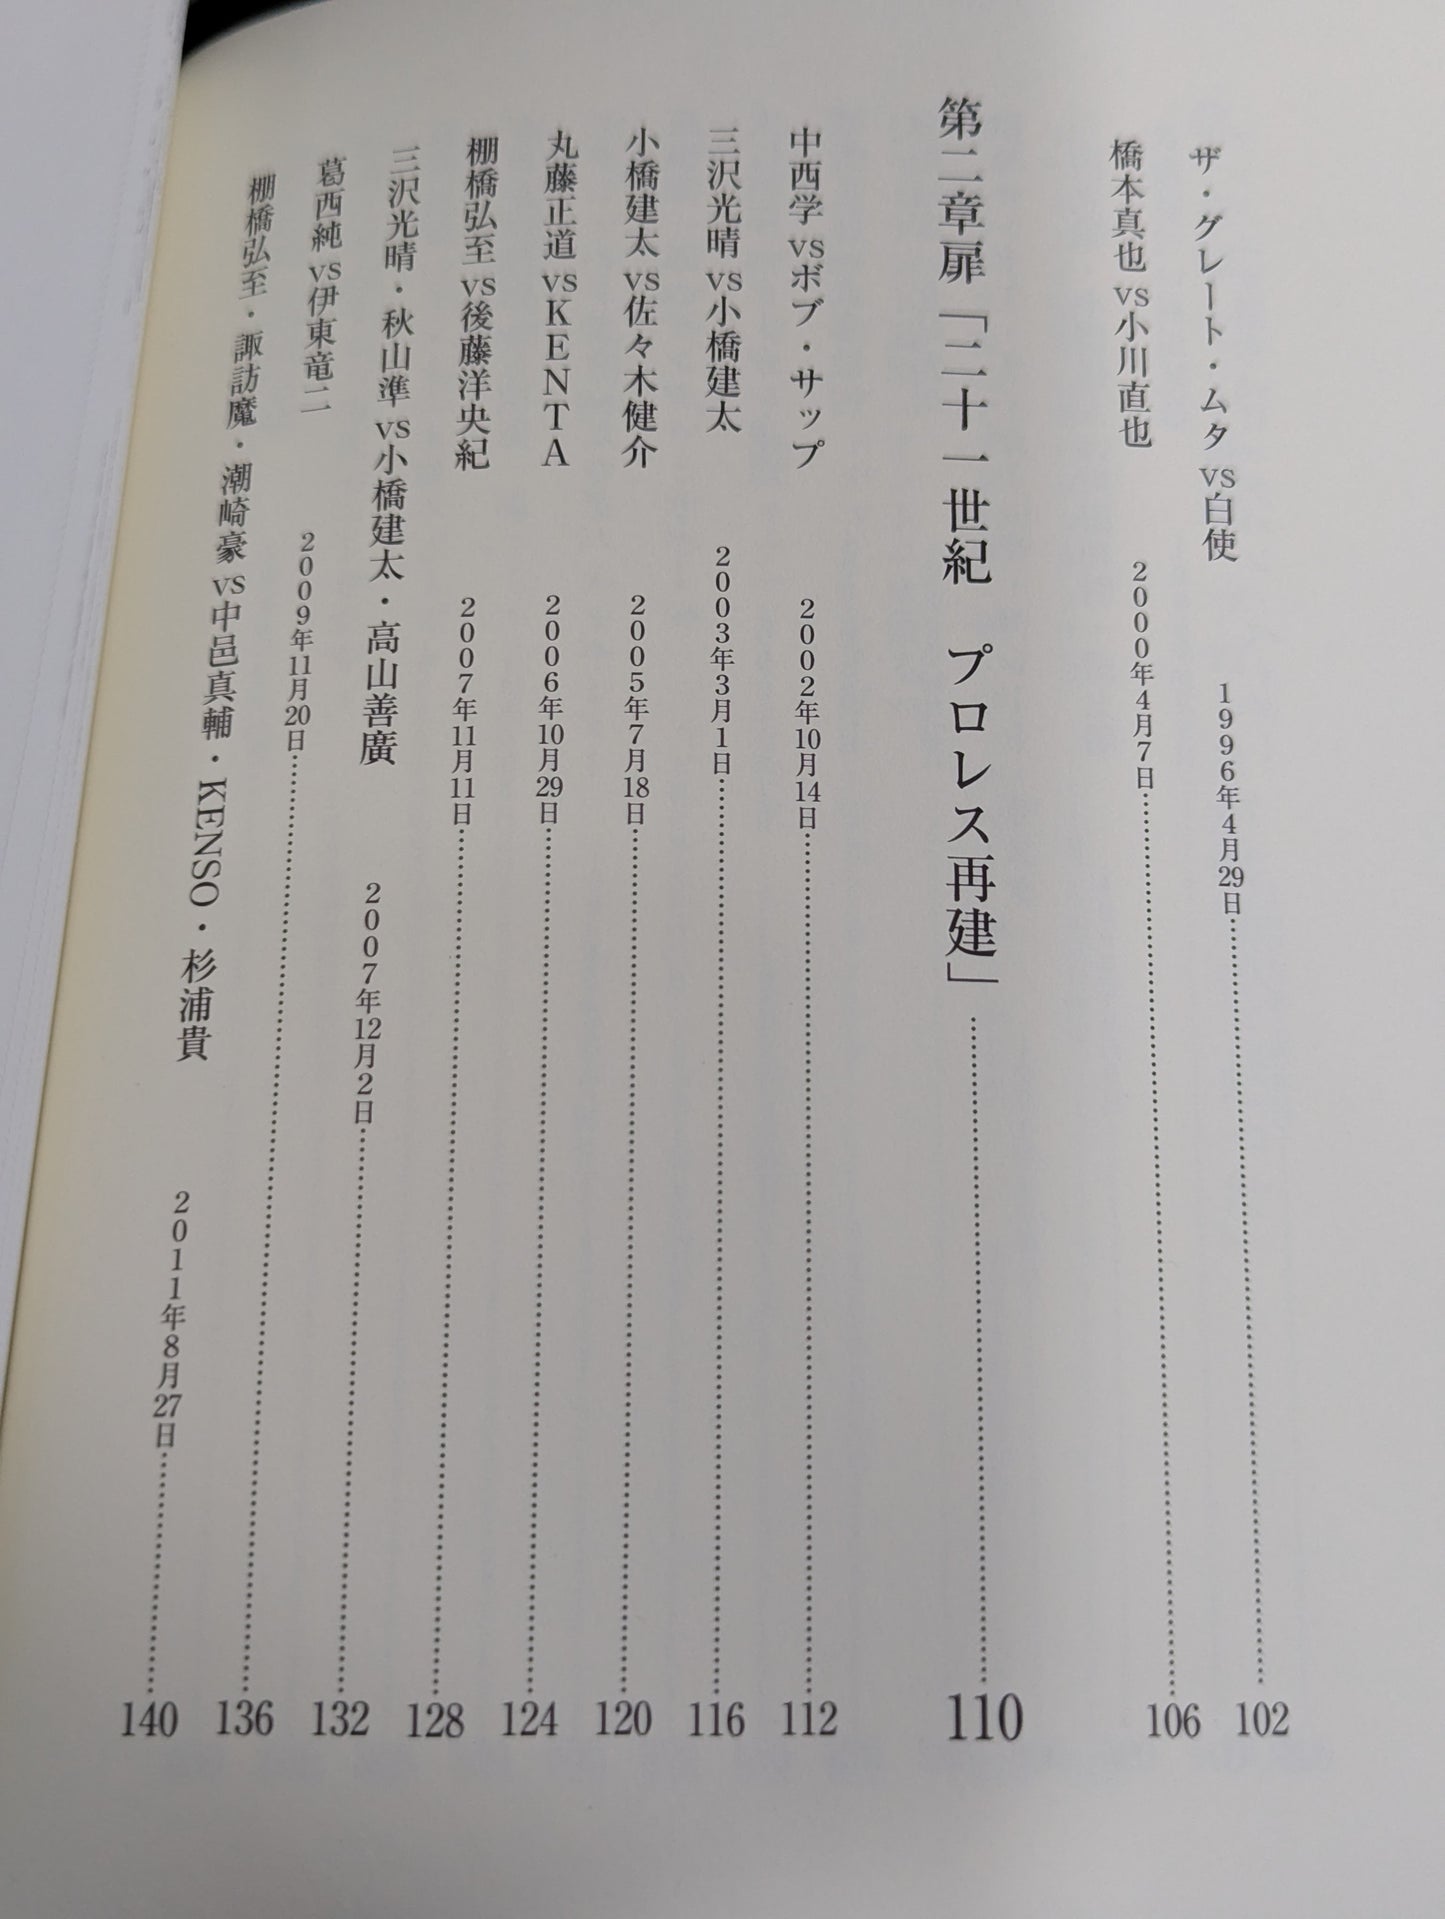 ザ・グレート・ムタ vs 白使　1996年4月29日……102
橋本真也 vs 小川直也　2000年4月7日……106
第二章扉「二十一世紀　プロレス再建」……110
中西学 vs ボブ・サップ　2002年10月14日……112
三沢光晴 vs 小橋建太　2003年3月1日……116
小橋建太 vs 佐々木健介　2005年7月18日……120
丸藤正道 vs KENTA　2006年10月29日……124
棚橋弘至 vs 後藤洋央紀　2007年11月11日……128
三沢光晴・秋山準 vs 小橋建太・高山善廣　2007年12月2日……132
葛西純 vs 伊東竜二　2009年11月20日……136
棚橋弘至・諏訪魔・潮崎豪 vs 中邑真輔・KENSO・杉浦貴　2011年8月27日……140